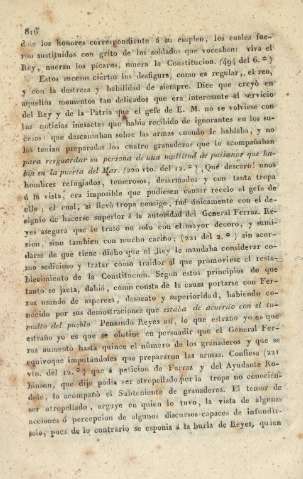 816
dos los honores correspondiente á su empleo, los cuales fueron
sustituidos con grito de los soldados que voceaban: viva el
Rey, mueran los pícaros, muera la Constitucion. (494 del 6.º y
Estos sucesos ciertos los desfigura, como es regular, el reo,
y con la destreza y habilidad de siempre. Dice que creyó en
aquellos momentos tan delicados que era interesante al servicio
del Rey y de la Patria que el gefe de E. M. no se volviese con
las noticias inexactas que había recibido de ignorantes en los sucesos
que descansaban sobre las armas cuando le hablaba, y no
los tenian preparados los cuatro granaderos que le acompañaban
para resguardar su persona de una multitud de paisanos que habia
en la puerta del Mar. (220 vto. del 12.º) ¡Qué descaro! unos
hombres refugiados, temerosos, desarmados y con tanta tropa
á la vista, era imposible que pudiesen causar recelo al gefe de
elle, el cual, si llevó tropa consigo, fué únicamente con el designio
de hacerse superior á la autoridad del General Ferraz. Reyes
asegura que le trató no solo con el mayor decoro, y sumision,
sino tambien con mucho cariño; (221 del 2.º) sin acordarse
de que tiene dicho que el Rey le mandaba considerar como
sedicioso y tratar como traidor al que promoviese el restablecimiento
de la Constitucion. Segun estos principios de que
tanto se jacta, debió, como consta de la causa portarse con Ferraz
usando de aspereza, desacato y superioridad, habiendo conocido
por sus demostraciones que estaba de acuerdo con el tumulto
del pueblo. Pensando Reyes así, lo que estraño yo es que
estraño yo es que se obstine en persuadir que el General Ferraz
aumentó hasta quince el número de los granaderos y que se
equivoque imputándoles que prepararon las armas. Confiesa (221
vto. del 12.º) que á peticion de Ferraz y del Ayudante Rubiman,
que dijo podia ser atropellado por la tropa no conociéndole,
lo acompañó el Subteniente de granaderos. El temor de
ser atropellado, arguye en quien lo tuvo, la vista de algunas
acciones ó percepcion de algunos discursos capaces de infundirlo,
pues de lo contrario se esponia á la burla de Reyes, quien